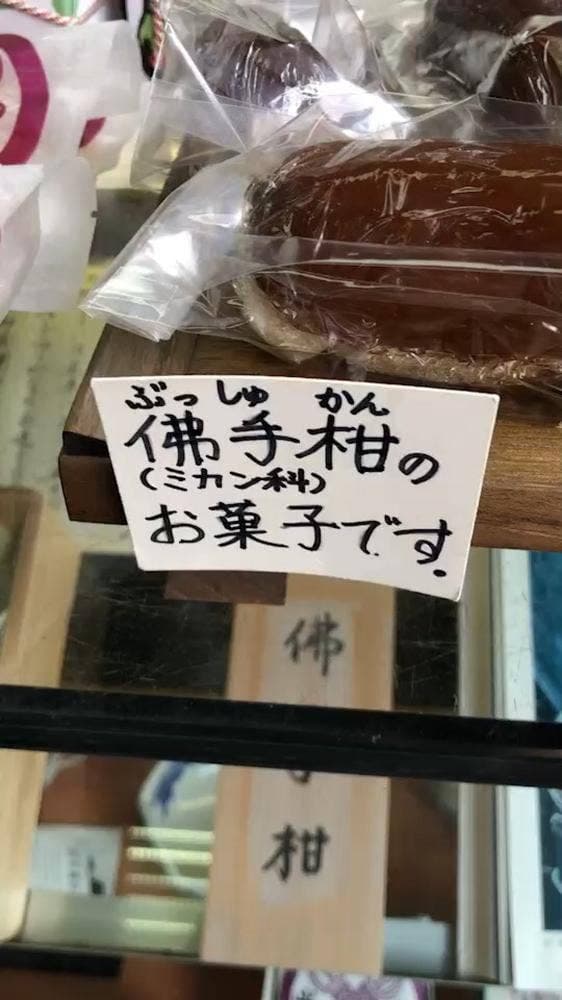 ぶっしゅかん
佛手柑の
(ミカン科)
お菓子です.
佛
柑